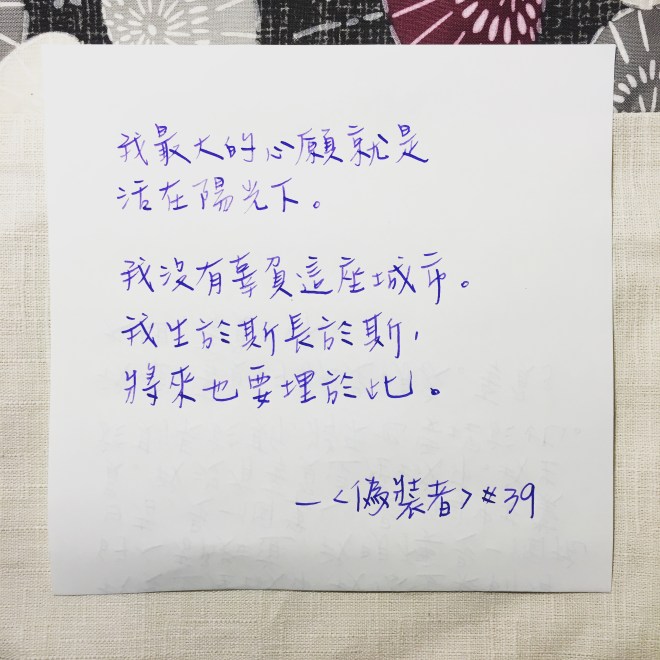 我最大的心願就是
活在陽光下。
我沒有辜負這座城市。
我生於斯長於斯，
將來也要埋於此。
—<偽裝者>#39